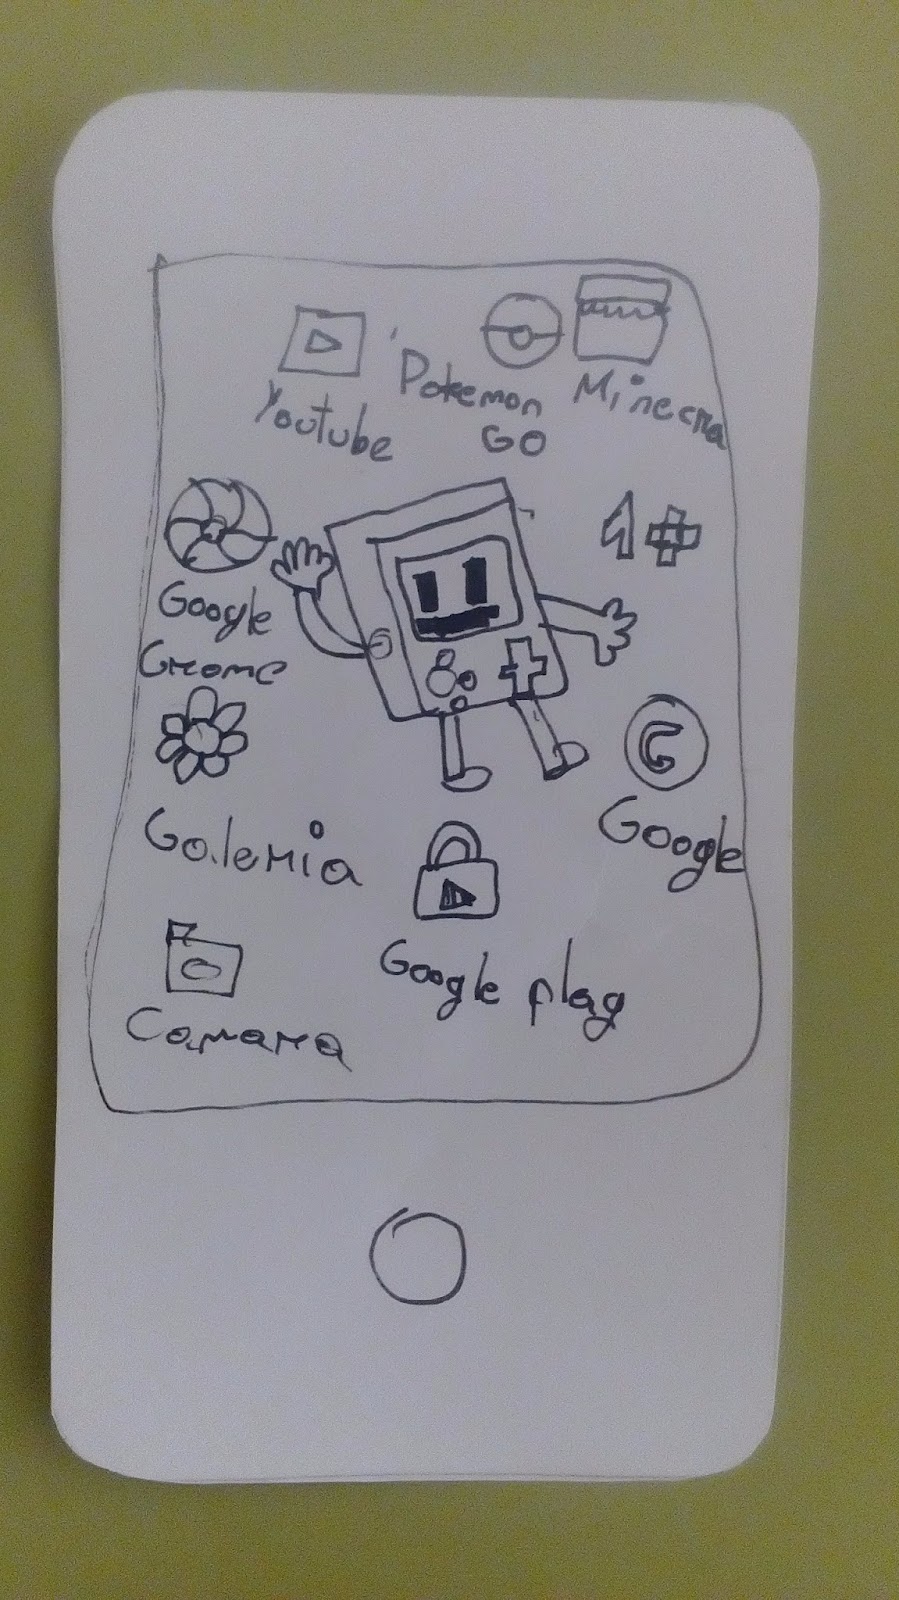 Youtube
Pokemon
GO
Minecra
Google
Crome
1+
Galeria
Google
Google play
Camara